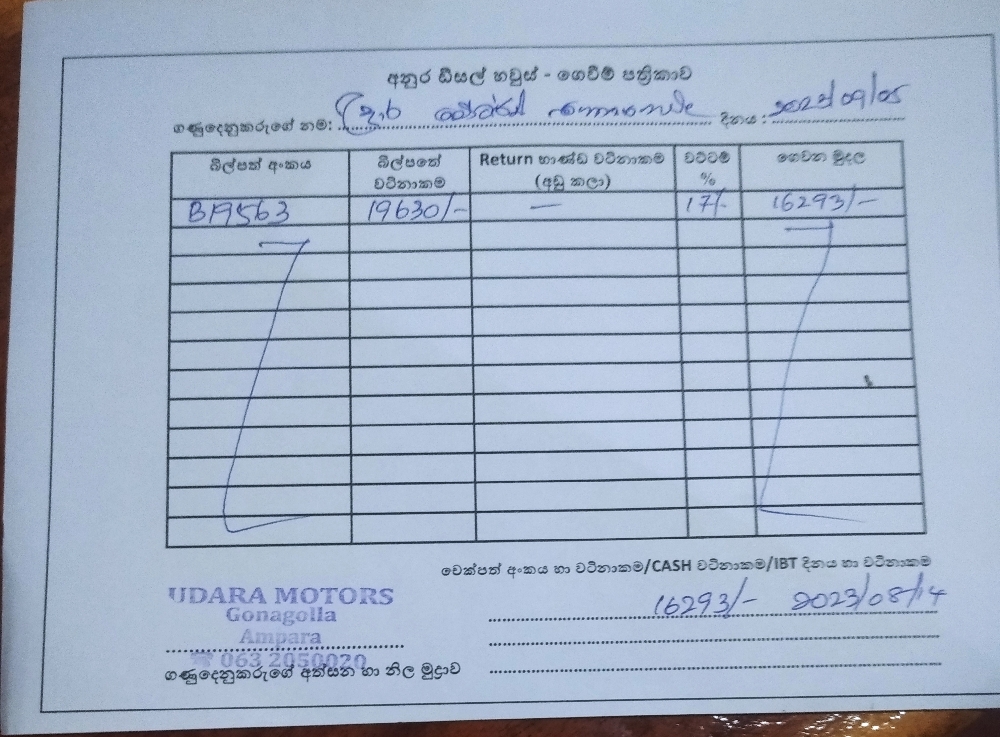 අනුර ඩීසල් හවුස් - ගෙවීම් පත්‍රිකාව
ගණුදෙනුකරුගේ නම: දිනය: 2023/09/05
බිල්පත් අංකය බිල්පතේ වටිනාකම Return භාණ්ඩ වටිනාකම (අඩු කලා) වට්ටම් % ගෙවන මුදල
B19563 19630/- — 17/- 16293/-
චෙක්පත් අංකය හා වටිනාකම/CASH වටිනාකම/IBT දිනය හා වටිනාකම
16293/- 2023/08/14
UDARA MOTORS
Gonagolla
Ampara
☎ 063 2050020
ගණුදෙනුකරුගේ අත්සන හා නිල මුද්‍රාව